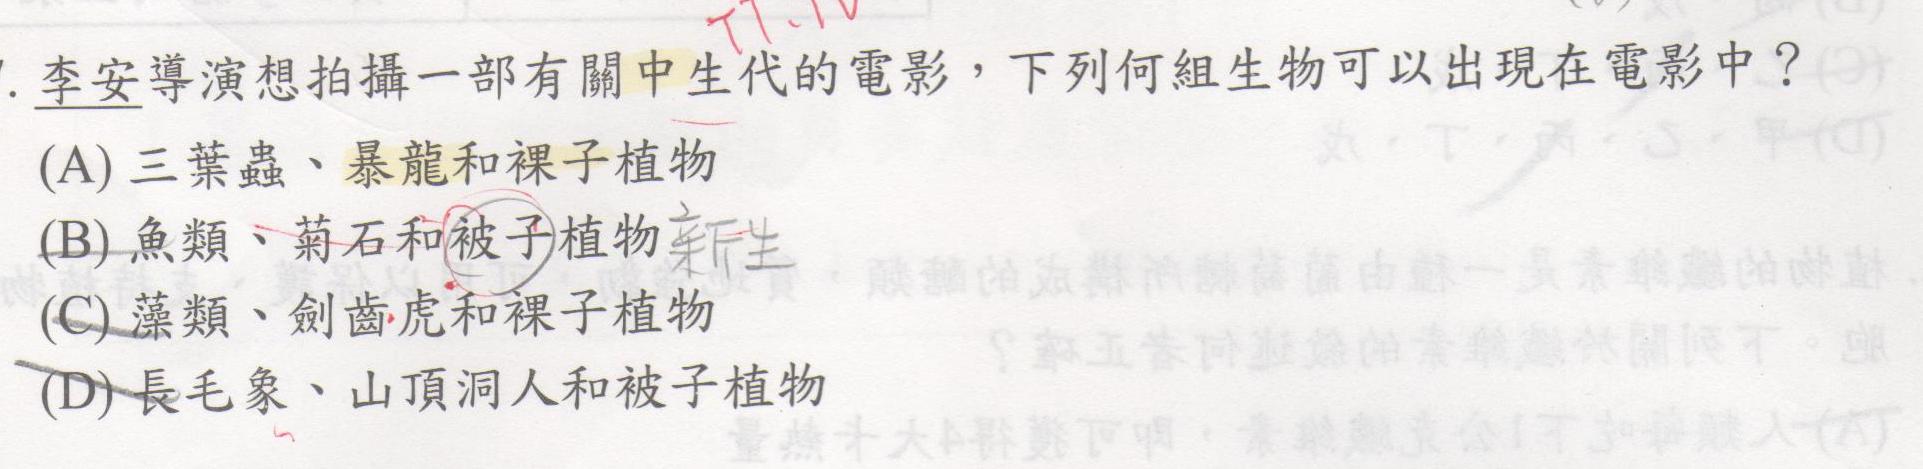 李安導演想拍攝一部有關中生代的電影，下列何組生物可以出現在電影中？
(A) 三葉蟲、暴龍和裸子植物
(B) 魚類、菊石和被子植物 新生
(C) 藻類、劍齒虎和裸子植物
(D) 長毛象、山頂洞人和被子植物